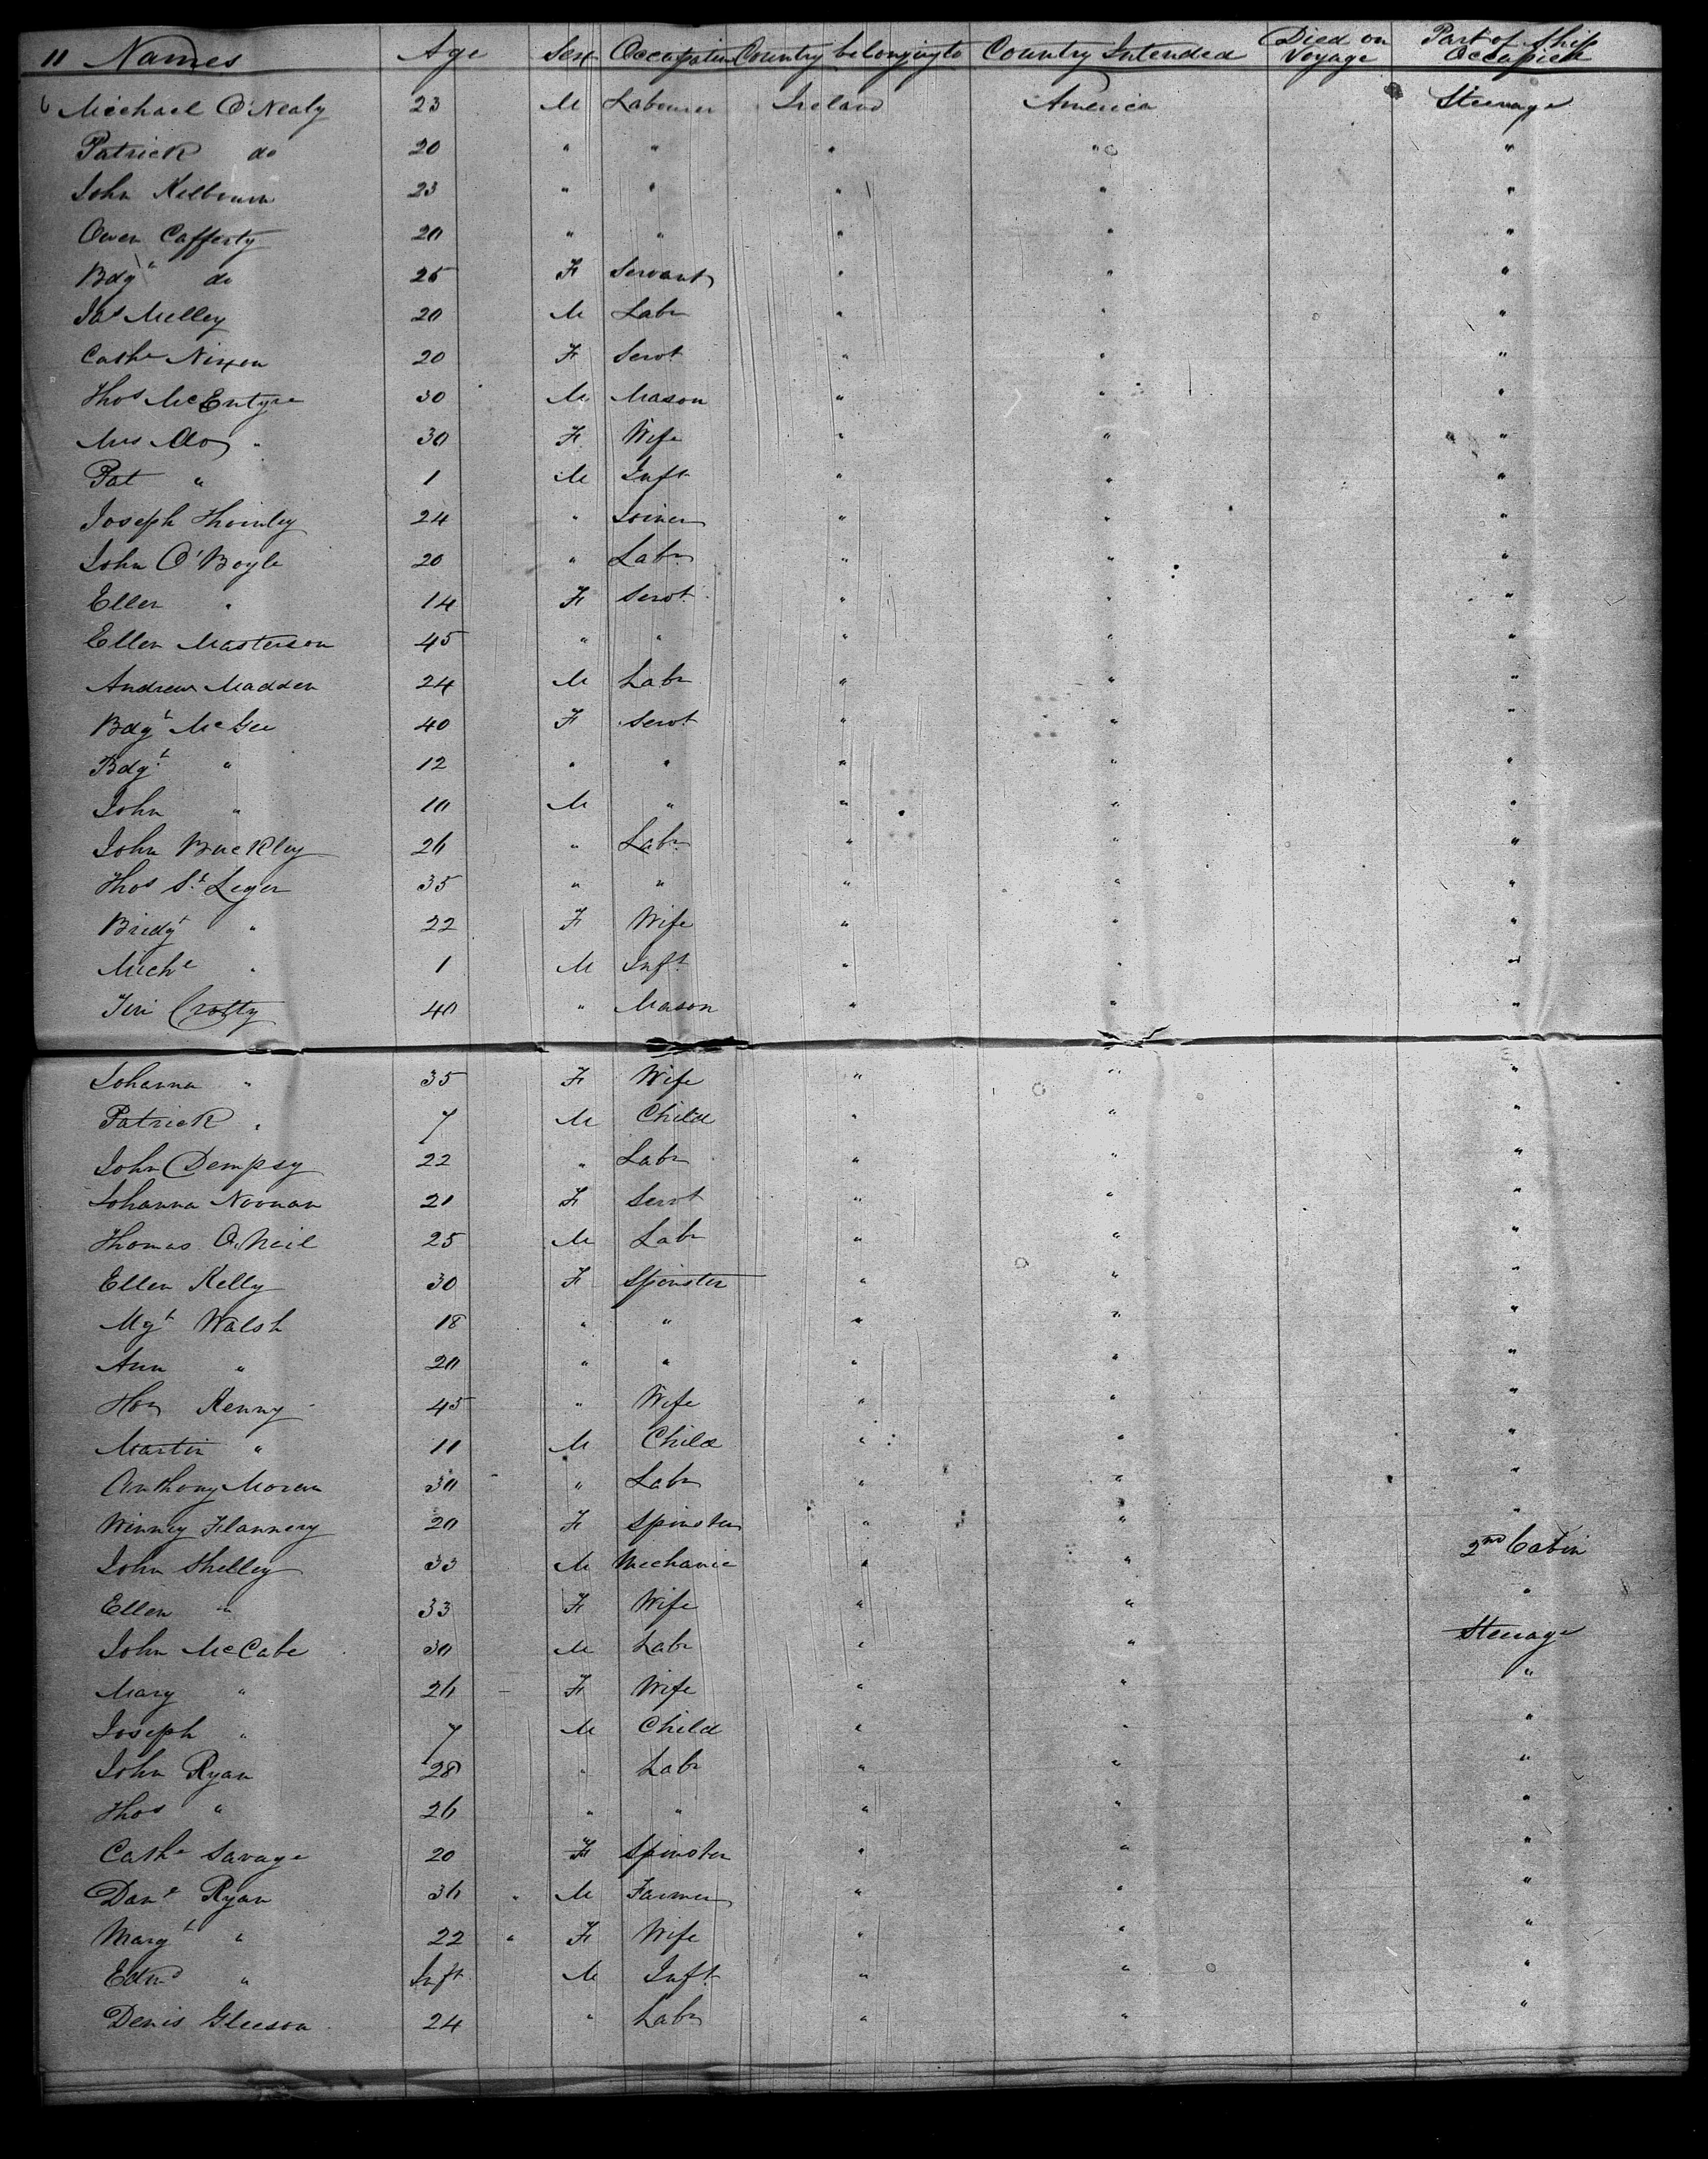 11 Names Age Sex Occupation Country belonging to Country Intended Died on Voyage Part of Ship Occupied
Michael O'Nealy 23 M Labourer Ireland America Steerage
Patrick do 20 " " " " "
John Kilbourn 23 " " " " "
Owen Cafferty 20 " " " " "
Bdgt do 25 F Servant " " "
Jas Melley 20 M Labr " " "
Cathe Nixon 20 F Servt " " "
Thos McEntyre 30 M Mason " " "
Mrs Do " 30 F Wife " " "
Pat " 1 M Inft " " "
Joseph Thornley 24 " Joiner " " "
John O'Boyle 20 " Labr " " "
Ellen " 14 F Servt " " "
Ellen Masterson 45 " " " " "
Andrew Madden 24 M Labr " " "
Bdgt McGee 40 F Servt " " "
Bdgt " 12 " " " " "
John " 10 M " " " "
John Buckley 26 " Labr " " "
Thos St Leger 35 " " " " "
Bridgt " 22 F Wife " " "
Miche " 1 M Inft " " "
Jeri Crotty 40 " Mason " " "
Johanna " 35 F Wife " " "
Patrick " 7 M Child " " "
John Dempsy 22 " Labr " " "
Johanna Noonan 21 F Servt " " "
Thomas O.Neil 25 M Labr " " "
Ellen Kelly 30 F Spinster " " "
Mgt Walsh 18 " " " " "
Ann " 20 " " " " "
Hon Kenny 45 " Wife " " "
Martin " 11 M Child " " "
Anthony Moran 30 " Labr " " "
Winney Flannery 20 F Spinster " " "
John Shelley 33 M Mechanic " " 2nd Cabin
Ellen " 33 F Wife " " "
John McCabe 30 M Labr " " Steerage
Mary " 26 F Wife " " "
Joseph " 7 M Child " " "
John Ryan 28 " Labr " " "
Thos " 26 " " " " "
Cathe Savage 20 F Spinster " " "
Dane Ryan 36 M Farmer " " "
Margt " 22 F Wife " " "
Edmd " Inft M Inft " " "
Denis Gleeson 24 " Labr " " "